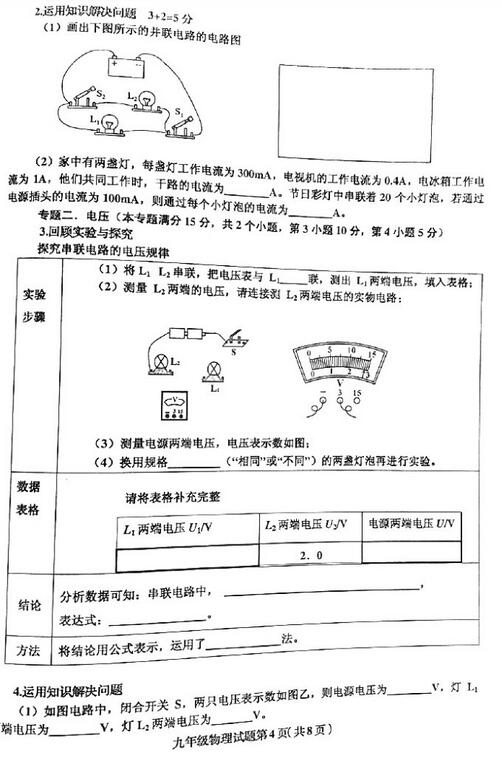 2.运用知识解决问题 3+2=5 分
(1) 画出下图所示的并联电路的电路图
+
S₂
L₂
S₁
L₁
(2) 家中有两盏灯，每盏灯工作电流为 300mA，电视机的工作电流为 0.4A，电冰箱工作电
流为 1A，他们共同工作时，干路的电流为______A。节日彩灯中串联着 20 个小灯泡，若通过
电源插头的电流为 100mA，则通过每个小灯泡的电流为______A。
专题二．电压（本专题满分 15 分，共 2 个小题，第 3 小题 10 分，第 4 小题 5 分）
3.回顾实验与探究
探究串联电路的电压规律
实验
步骤
(1) 将 L₁ L₂ 串联，把电压表与 L₁____联，测出 L₁ 两端电压，填入表格；
(2) 测量 L₂ 两端的电压，请连接测 L₂ 两端电压的实物电路；
S
L₂
L₁
V
0 5 10 15
0 1 2 3
V
− 3 15
(3) 测量电源两端电压，电压表示数如图；
(4) 换用规格________（“相同”或“不同”）的两盏灯泡再进行实验。
数据
表格
请将表格补充完整
L₁ 两端电压 U₁/V L₂ 两端电压 U₂/V 电源两端电压 U/V
2．0
结论
分析数据可知：串联电路中，____________________，
表达式：____________。
方法
将结论用公式表示，运用了__________法。
4.运用知识解决问题
(1) 如图电路中，闭合开关 S，两只电压表示数如图乙，则电源电压为______V，灯 L₁
端电压为______V，灯 L₂ 两端电压为______V。
九年级物理试题第 4 页( 共 8 页)